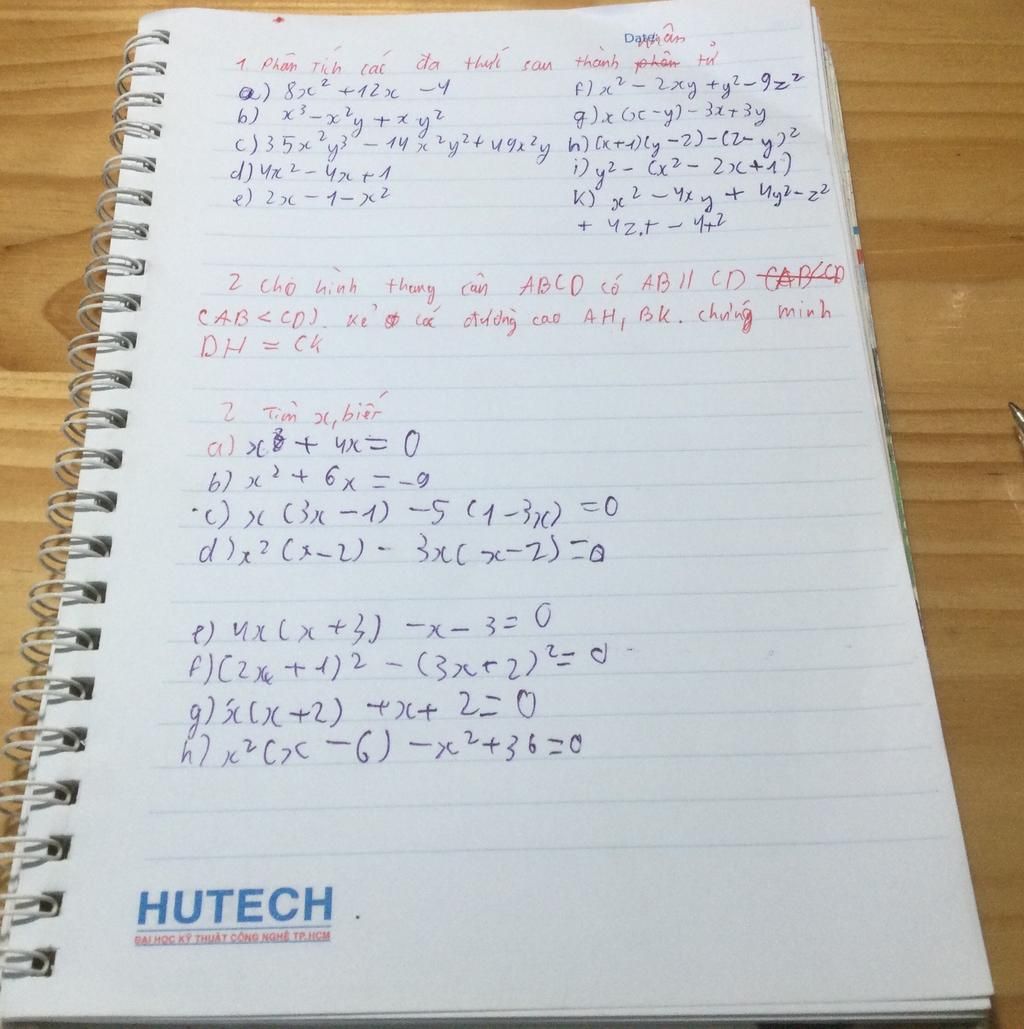 Date: nhân
1. Phân tích các đa thức sau thành phân tử
a) 8x² + 12x - 4
f) x² - 2xy + y² - 9z²
b) x³ - x²y + xy²
g) x(x-y) - 3x + 3y
c) 35x²y³ - 14x²y² + 49x²y
h) (x+1)(y-2) - (2-y)²
d) 4x² - 4x + 1
i) y² - (x² - 2x + 1)
e) 2x - 1 - x²
k) x² - 4xy + 4y² - z²
+ 4z.t - 4t²
2 cho hình thang cân ABCD có AB // CD (AB<CD
(AB < CD). Kẻ các đường cao AH, BK. chứng minh
DH = CK
2 Tìm x, biết
a) x³ + 4x = 0
b) x² + 6x = -9
c) x (3x - 1) - 5 (1 - 3x) = 0
d) x² (x - 2) - 3x( x - 2) = 0
e) 4x(x + 3) - x - 3 = 0
f) (2x + 1)² - (3x + 2)² = 0
g) x(x + 2) + x + 2 = 0
h) x² (x - 6) - x² + 36 = 0
HUTECH
ĐẠI HỌC KỸ THUẬT CÔNG NGHỆ TP.HCM